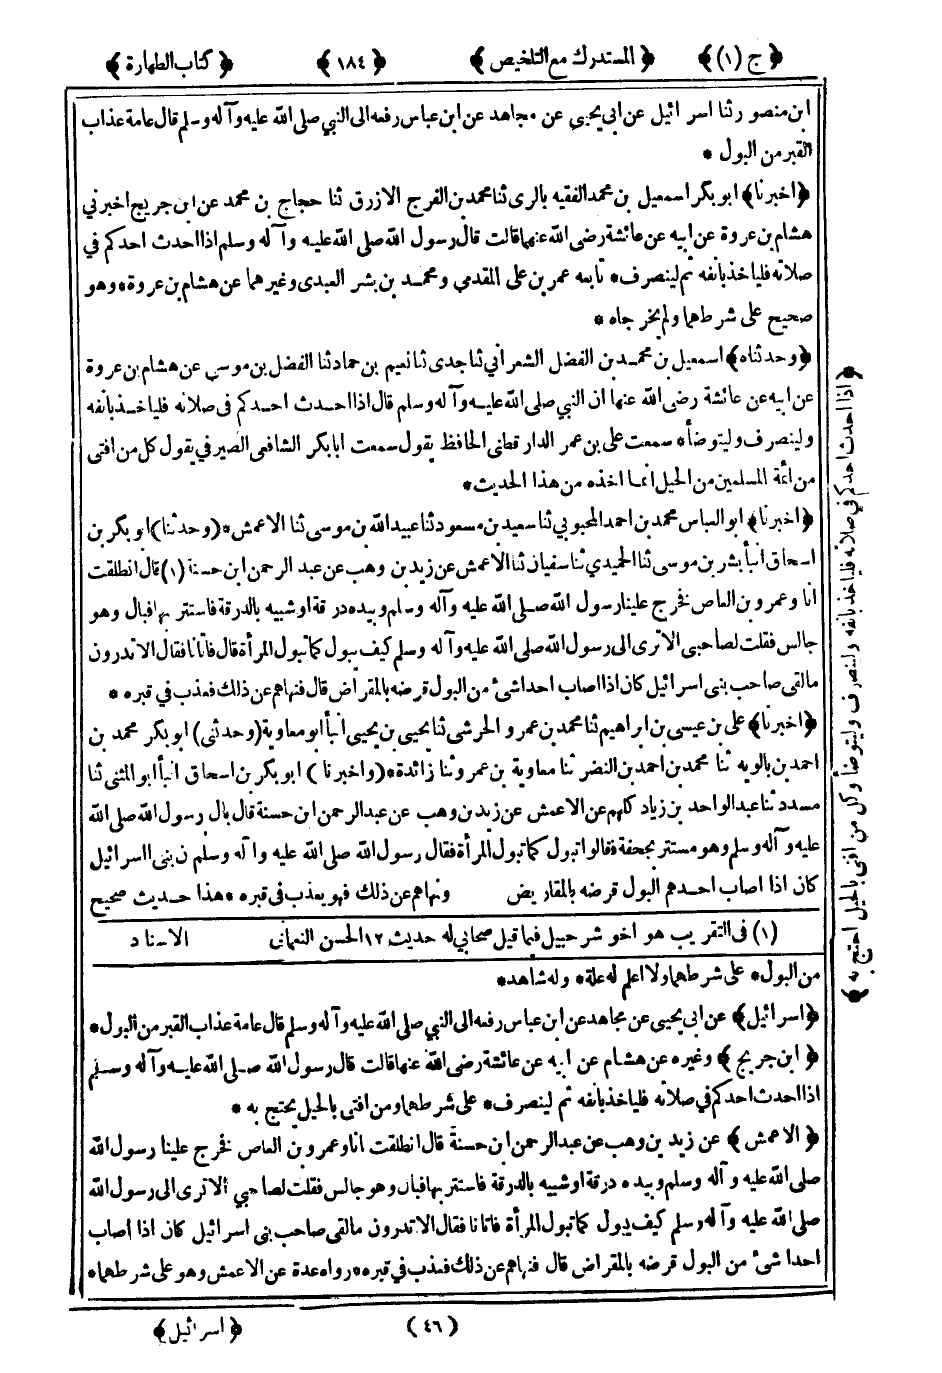 ﴿ ج (١) ﴾ ﴿ المستدرك مع التلخيص ﴾ ﴿ ١٨٤ ﴾ ﴿ كتاب الطهارة ﴾
ابن منصور ثنا اسرائيل عن ابى يحيى عن مجاهد عن ابن عباس رفعه الى النبي صلى الله عليه وآله وسلم قال عامة عذاب
القبر من البول *
﴿ اخبرنا ﴾ ابو بكر اسمعيل بن محمد الفقيه بالرى ثنا محمد بن الفرج الازرق ثنا حجاج بن محمد عن ابن جريج اخبرني
هشام بن عروة عن ابيه عن عائشة رضى الله عنها قالت قال رسول الله صلى الله عليه وآله وسلم اذا احدث احدكم في
صلاته فليأخذ بانفه ثم لينصرف * تابعه عمر بن على المقدمي ومحمد بن بشر العبدى وغيرهما عن هشام بن عروة * وهو
صحيح على شرطهما ولم يخرجاه *
﴿ وحدثناه ﴾ اسمعيل بن محمد بن الفضل الشعراني ثنا جدى ثنا نعيم بن حماد ثنا الفضل بن موسى عن هشام بن عروة
عن ابيه عن عائشة رضى الله عنها ان النبي صلى الله عليه وآله وسلم قال اذا احدث احدكم فى صلاته فليأخذ بانفه
ولينصرف وليتوضأ * سمعت على بن عمر الدار قطنى الحافظ يقول سمعت ابا بكر الشافعى الصيرفي يقول كل من افتى
من ائمة المسلمين من الحيل انما اخذه من هذا الحديث *
﴿ اخبرنا ﴾ ابو العباس محمد بن احمد المحبوبي ثنا سعيد بن مسعود ثنا عبيد الله بن موسى ثنا الاعمش * (وحدثنا) ابو بكر بن
اسحاق انبأ بشر بن موسى ثنا الحميدي ثنا سفيان ثنا الاعمش عن زيد بن وهب عن عبد الرحمن ابن حسنة (١) قال انطلقت
انا وعمرو بن العاص فخرج علينا رسول الله صلى الله عليه وآله وسلم وبيده درقة او شبيه بالدرقة فاستتر بها فبال وهو
جالس فقلت لصاحبى الا ترى الى رسول الله صلى الله عليه وآله وسلم كيف يبول كما تبول المرأة قال فأتانا فقال الا تدرون
ما لقى صاحب بنى اسرائيل كان اذا اصاب احدا شئ من البول قرضه بالمقراض قال فنهاهم عن ذلك فعذب في قبره *
﴿ اخبرنا ﴾ على بن عيسى بن ابراهيم ثنا محمد بن عمرو الحرشى ثنا يحيى بن يحيى انبأ ابو معاوية (وحدثنى) ابو بكر محمد بن
احمد بن بالويه ثنا محمد بن احمد بن النضر ثنا معاوية بن عمرو ثنا زائدة * (واخبرنا) ابو بكر بن اسحاق انبأ ابو المثنى ثنا
مسدد ثنا عبد الواحد بن زياد كلهم عن الاعمش عن زيد بن وهب عن عبد الرحمن ابن حسنة قال بال رسول الله صلى الله
عليه وآله وسلم وهو مستتر بجحفة فقالوا تبول كما تبول المرأة فقال رسول الله صلى الله عليه وآله وسلم ن بنى اسرائيل
كان اذا اصاب احدهم البول قرضه بالمقاريض ونهاهم عن ذلك فهو يعذب فى قبره * هذا حديث صحيح
(١) فى التقريب هو اخو شرحبيل فيما قيل صحابي له حديث ١٢ الحسن النعمانى الاسناد
من البول * على شرطهما ولا اعلم له علة * وله شاهد *
﴿ اسرائيل ﴾ عن ابى يحيى عن مجاهد عن ابن عباس رفعه الى النبي صلى الله عليه وآله وسلم قال عامة عذاب القبر من البول *
﴿ ابن جريج ﴾ وغيره عن هشام عن ابيه عن عائشة رضى الله عنها قالت قال رسول الله صلى الله عليه وآله وسلم
اذا احدث احدكم في صلاته فليأخذ بانفه ثم لينصرف * على شرطهما ومن افتى بالحيل يحتج به *
﴿ الاعمش ﴾ عن زيد بن وهب عن عبد الرحمن ابن حسنة قال انطلقت انا وعمرو بن العاص فخرج علينا رسول الله
صلى الله عليه وآله وسلم وبيده درقة او شبيه بالدرقة فاستتر بها فبال وهو جالس فقلت لصاحبي الا ترى الى رسول الله
صلى الله عليه وآله وسلم كيف يبول كما تبول المرأة فاتانا فقال الا تدرون ما لقى صاحب بنى اسرائيل كان اذا اصاب
احدا شئ من البول قرضه بالمقراض قال فنهاهم عن ذلك فعذب في قبره * رواه عدة عن الاعمش وهو على شرطهما *
﴿ اذا احدث احدكم في صلاته فليأخذ بانفه ولينصرف وليتوضأ وكل من افتى بالحيل احتج به ﴾
(٤٦) ﴿ اسرائيل ﴾